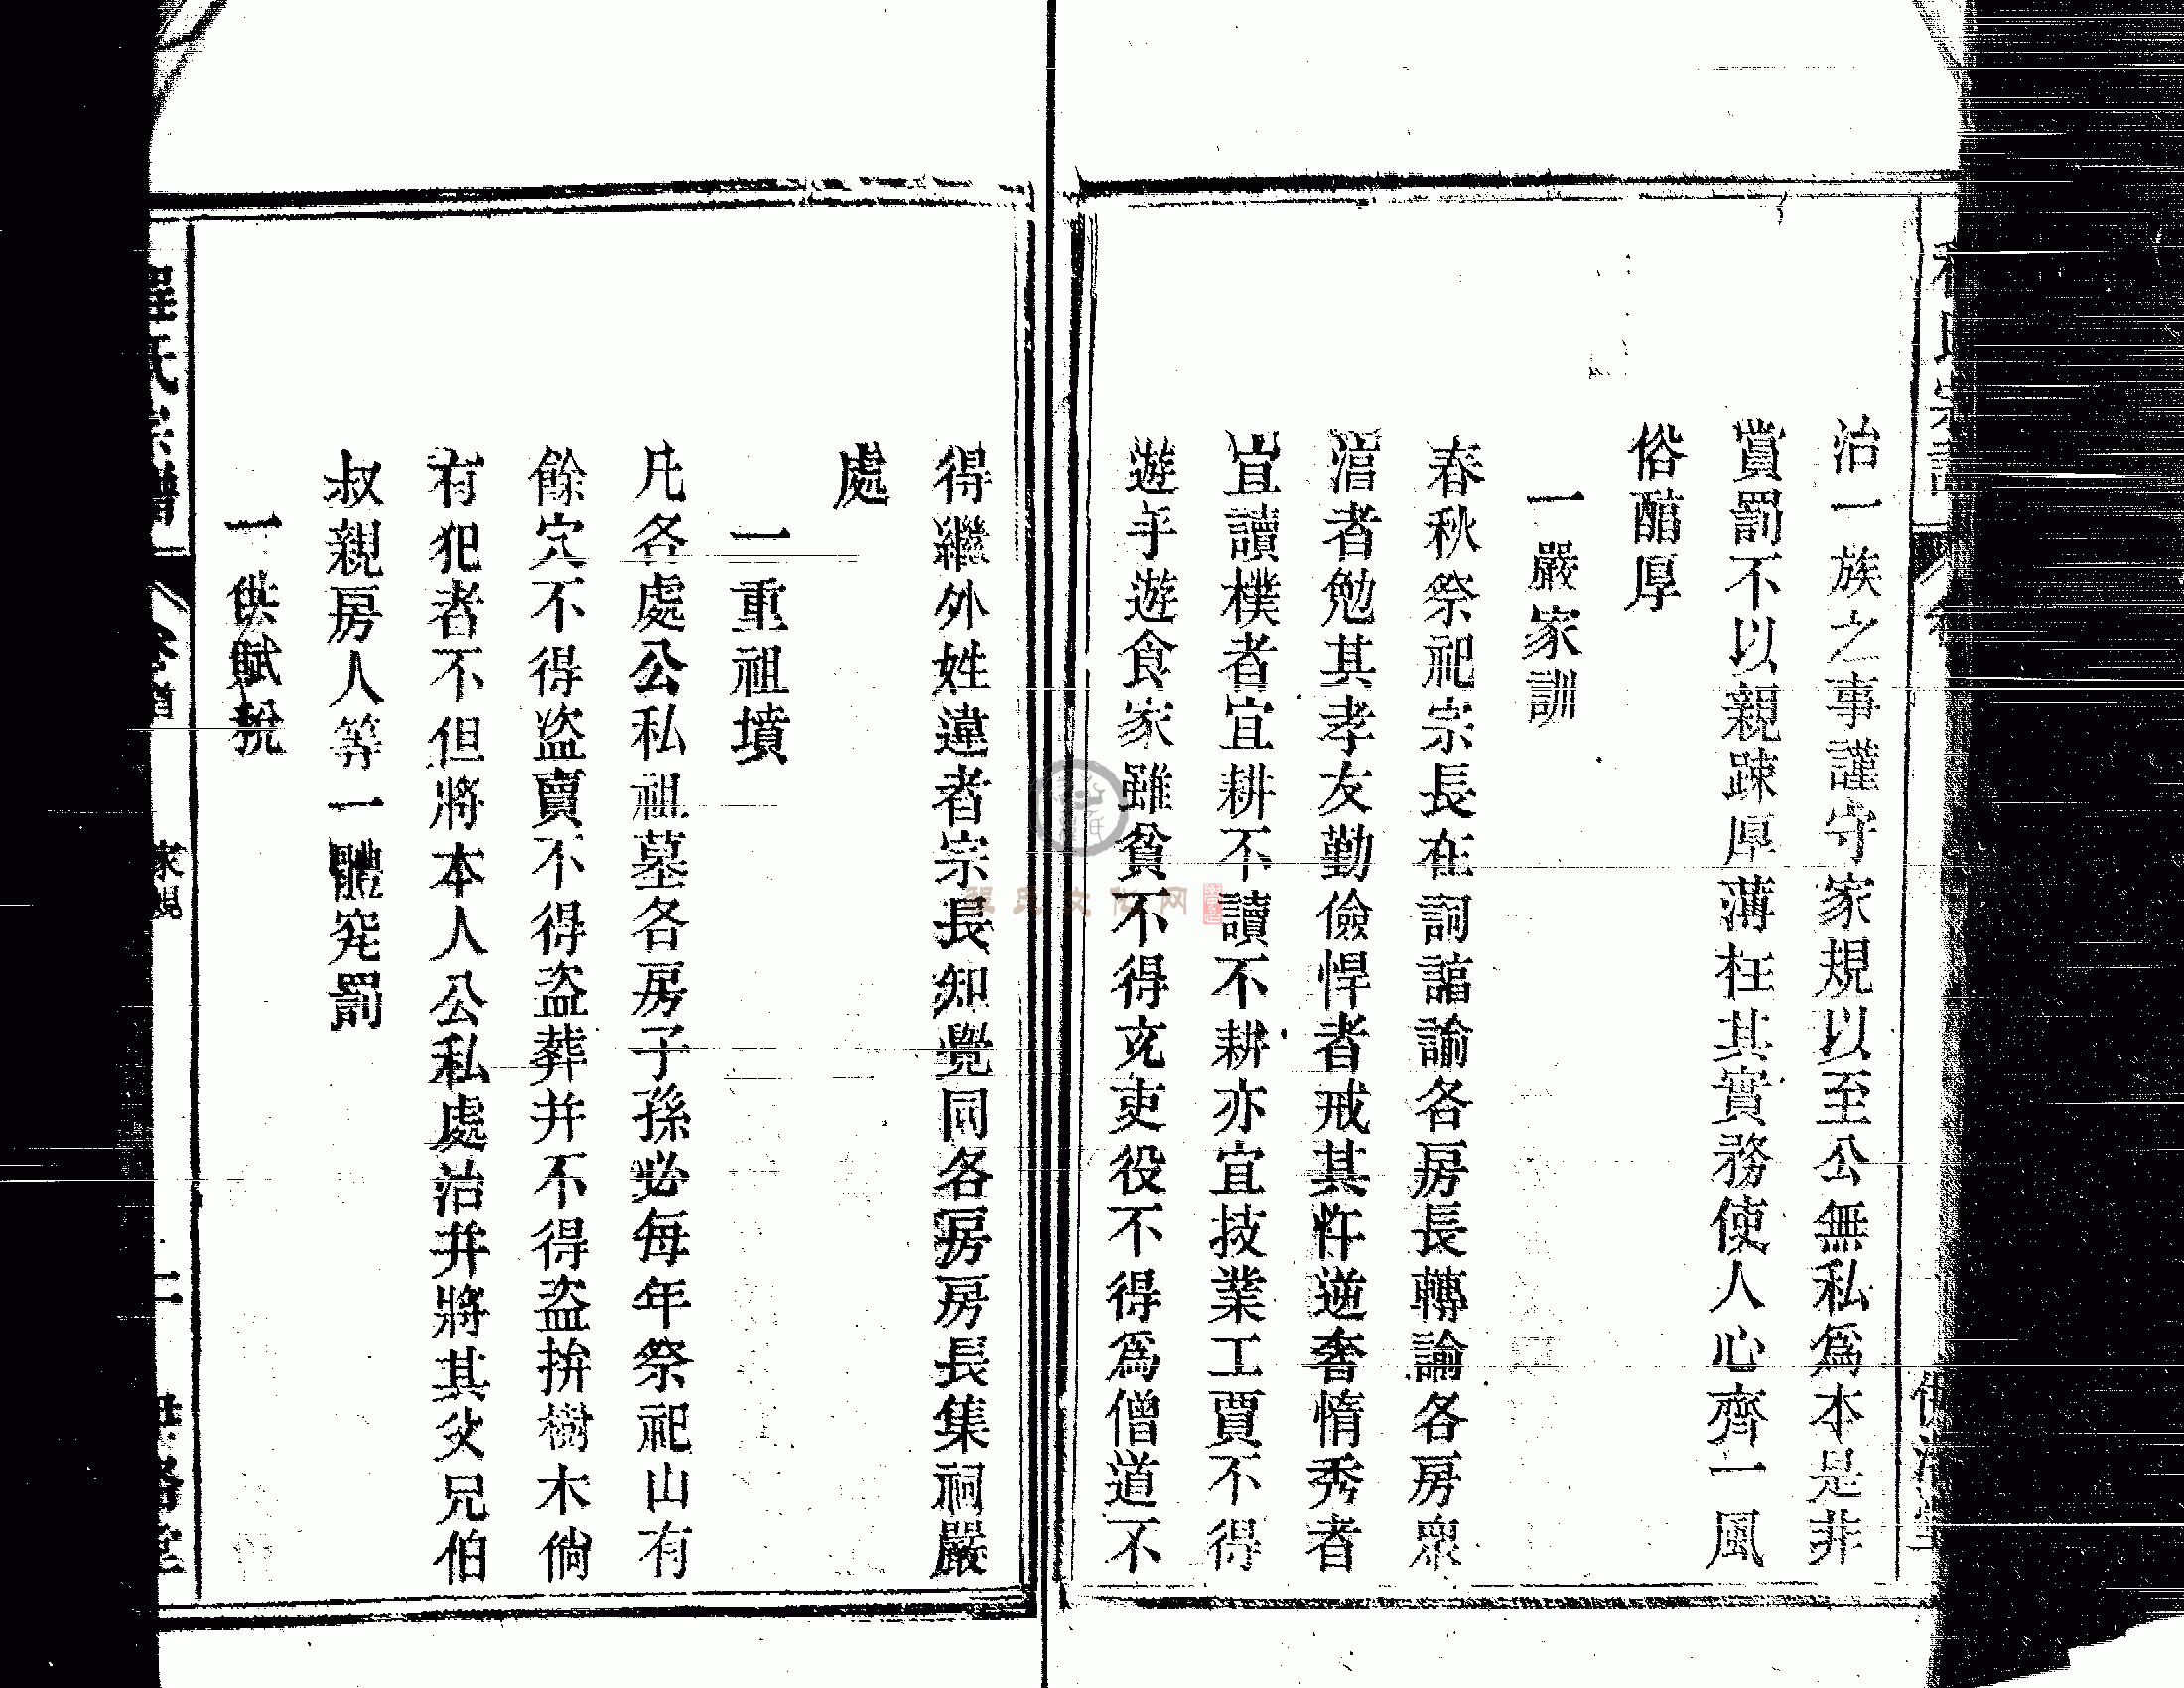 治一族之事謹守家規以至公無私為本是非
賞罰不以親疎厚薄枉其實務使人心齊一風
俗醕厚
一嚴家訓
春秋祭祀宗長在詞譮諭各房長轉諭各房衆
者勉其孝友勤儉悍者戒其忤逆奢惰秀者
宜讀樸者宜耕不讀不耕亦宜技業工賈不得
遊手遊食家雖貧不得充吏役不得為僧道不
得繼外姓違者宗長知覺同各房房長集祠嚴
處
一重祖墳
凡各處公私祖墓各房子孫必每年祭祀山有
餘穴不得盗賣不得盗葬幷不得盗拚樹木倘
有犯者不但將本人公私處治幷將其父兄伯
叔親房人等一體究罰
一供賦稅
程氏宗譜 卷首 家規 二